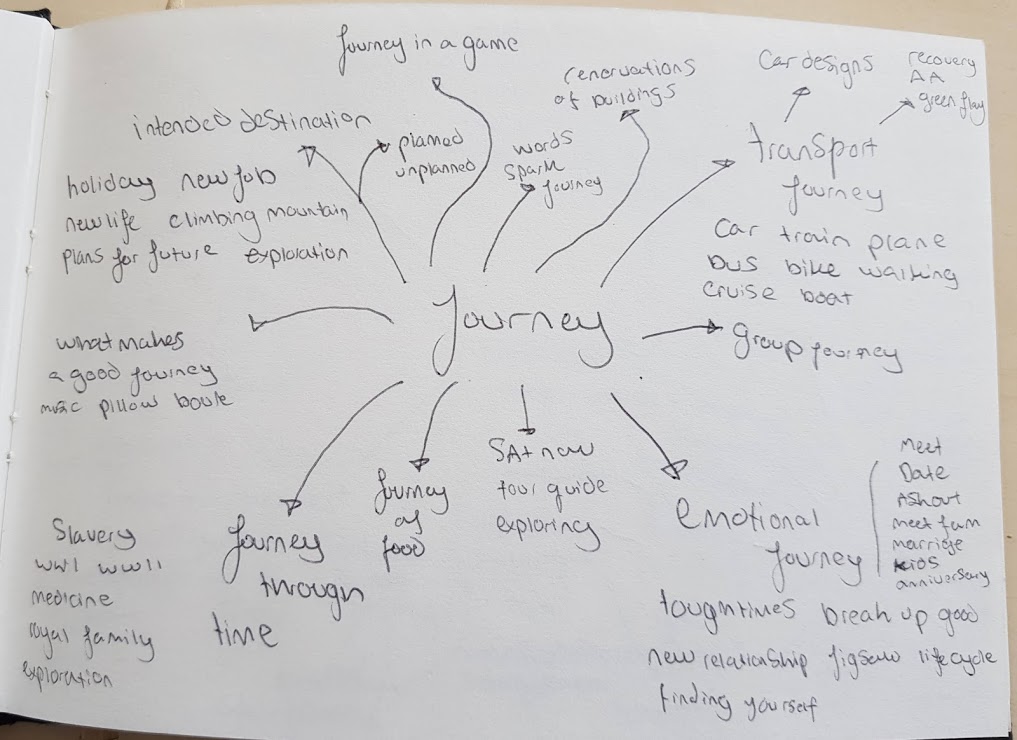 Journey in a game
renorvations
of buildings
Car designs
recovery
AA
green flag
intended destination
planned
unplanned
words
spark
journey
transport
journey
holiday new job
new life climbing mountain
plans for future exploration
car train plane
bus bike walking
cruise boat
Journey
group journey
what makes
a good journey
music pillow
SAt nav
tour guide
exploring
Journey
of
food
emotional
journey
Meet
Date
meet fam
marrige
kids
anniversary
Slavery
WW1 WW11
medicine
royal family
exploration
Journey
through
time
tough times break up good
new relationship jigsaw lifecycle
finding yourself